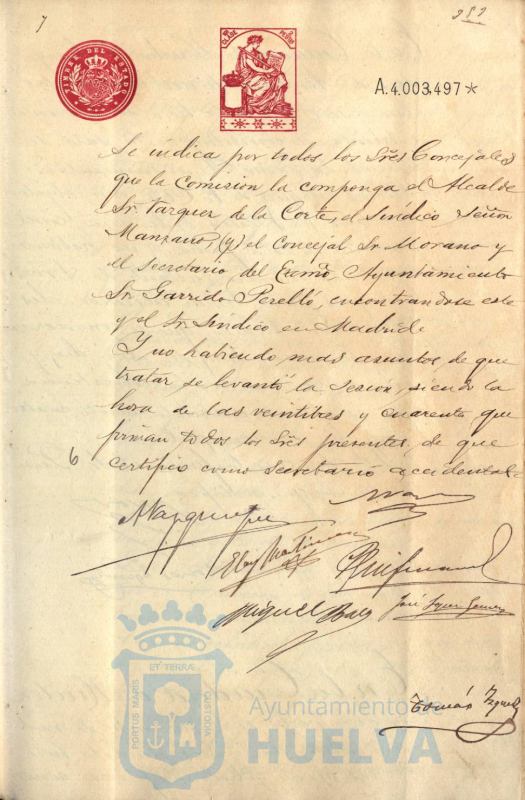 7
TIMBRE DEL ESTADO
A.4.003.497*
Se indica por todos los Srēs Concejales
que la Comision la componga el Alcalde
Sr. Vazquez de la Corte, el Síndico, Señor
Manzano, (y) el concejal Sr. Morano y
el secretario del Excmō Ayuntamiento
Sr. Garrido Perelló, encontrandose este
y el Sr. Síndico en Madrid.
Y no habiendo mas asuntos de que
tratar, se levantó la sesion, siendo la
hora de las veintitres y cuarenta que
firman todos los Srēs presentes de que
6 certifico como secretario accidental.
Eloy Martin
Miguel
José
Tomás
PORTUS MARIS ET TERRAE CUSTODIA
Ayuntamiento de
HUELVA